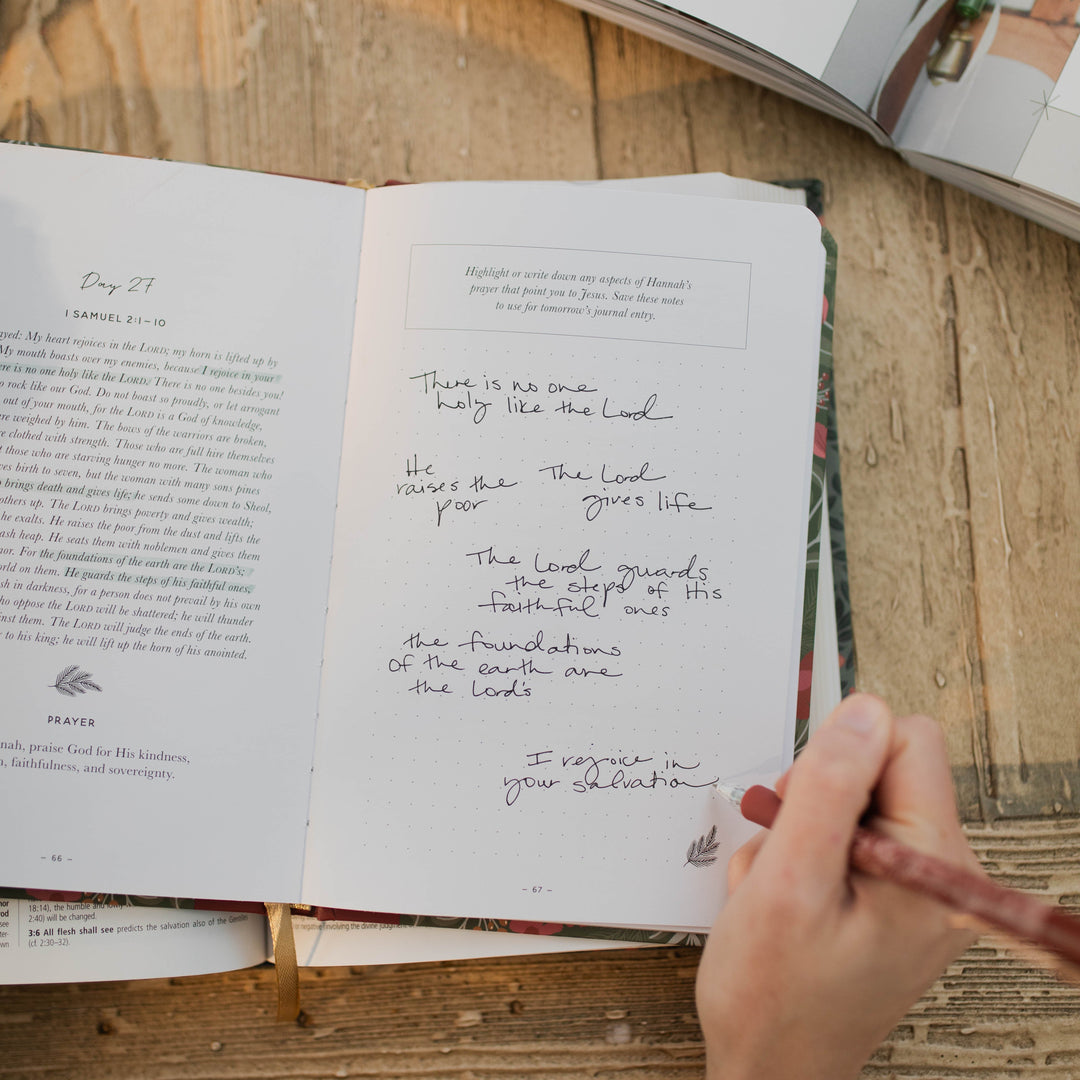 Day 27
1 SAMUEL 2:1–10
My heart rejoices in the LORD; my horn is lifted up by
My mouth boasts over my enemies, because I rejoice in your
is no one holy like the LORD. There is no one besides you!
rock like our God. Do not boast so proudly, or let arrogant
out of your mouth, for the LORD is a God of knowledge,
weighed by him. The bows of the warriors are broken,
clothed with strength. Those who are full hire themselves
those who are starving hunger no more. The woman who
birth to seven, but the woman with many sons pines
brings death and gives life; he sends some down to Sheol,
others up. The LORD brings poverty and gives wealth;
he exalts. He raises the poor from the dust and lifts the
heap. He seats them with noblemen and gives them
For the foundations of the earth are the LORD's;
on them. He guards the steps of his faithful ones,
in darkness, for a person does not prevail by his own
oppose the LORD will be shattered; he will thunder
them. The LORD will judge the ends of the earth.
to his king; he will lift up the horn of his anointed.
PRAYER
praise God for His kindness,
faithfulness, and sovereignty.
– 66 –
Highlight or write down any aspects of Hannah's
prayer that point you to Jesus. Save these notes
to use for tomorrow's journal entry.
There is no one
holy like the Lord
He
raises the
poor
The Lord
gives life
The Lord guards
the steps of His
faithful ones
the foundations
of the earth are
the Lord's
I rejoice in
your salvation
– 67 –
18:14), the humble and
2:40) will be changed.
3:6 All flesh shall see predicts the salvation also of the Gentiles
(cf. 2:30–32).
negative involving the divine judgment